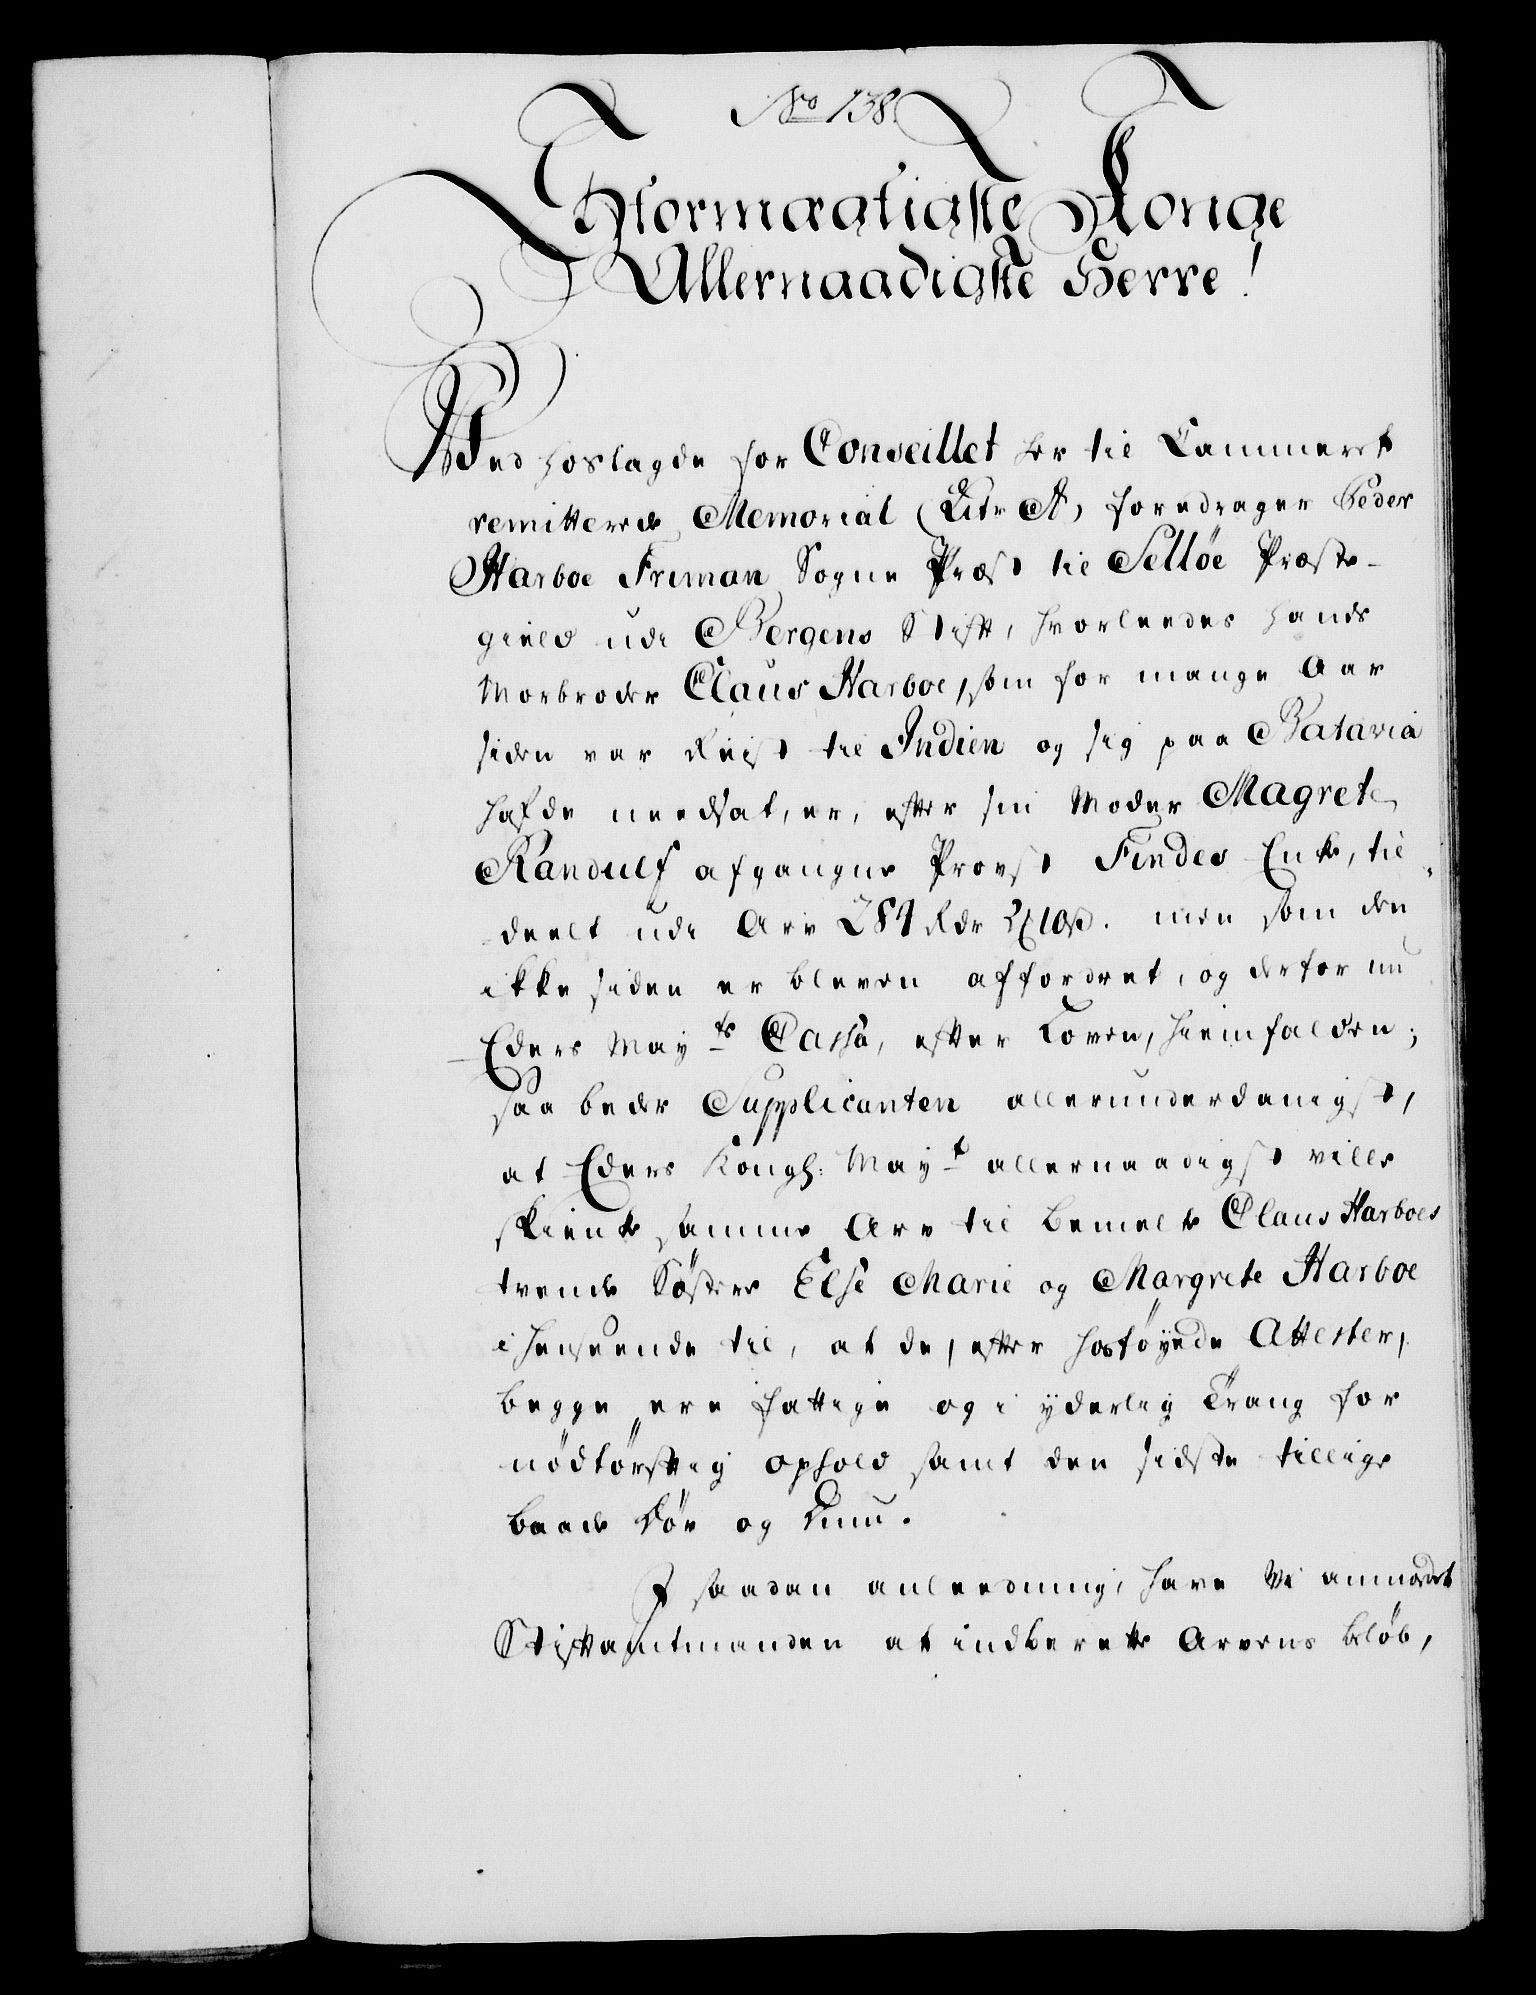 No 138.
Stormægtigste Konge
Allernaadigste Herre!
Ved hoslagde for Conseillet her til Cammeret
remitterede Memorial (Litr A) foredrager Peder
Harboe Friman Sogne Præst til Selløe Præste-
gield udi Bergens Stift, hvorleedes hands
Morbroder Claus Harboe, som for mange Aar
siden var Reist til Indien og sig paa Batavia
hafde needsat, er, efter sin Moder Magrete
Randulf afgangne Provst Findes Enke, til
deelt udi Arv 284 Rdr 2 10 s. men som den
ikke siden er bleven affordret, og derfor nu
Eders Mayts Cassa, efter Loven, hiemfalden;
saa beder Supplicanten allerunderdanigst,
at Eders Kongl: Mayt allernaadigst ville
skienke samme Arv til bemelte Claus Harboes
tvende Søstere Else Marie og Margrete Harboe
i henseende til, at de, efter hosføyede Attester,
begge ere fattige og i yderlig Trang for
nødtørftig ophold samt den sidste tillige
baade Døv og Dum.
I saadan anleedning, have Vi anmodet
Stiftamtmanden at indberette Arvens beløb,